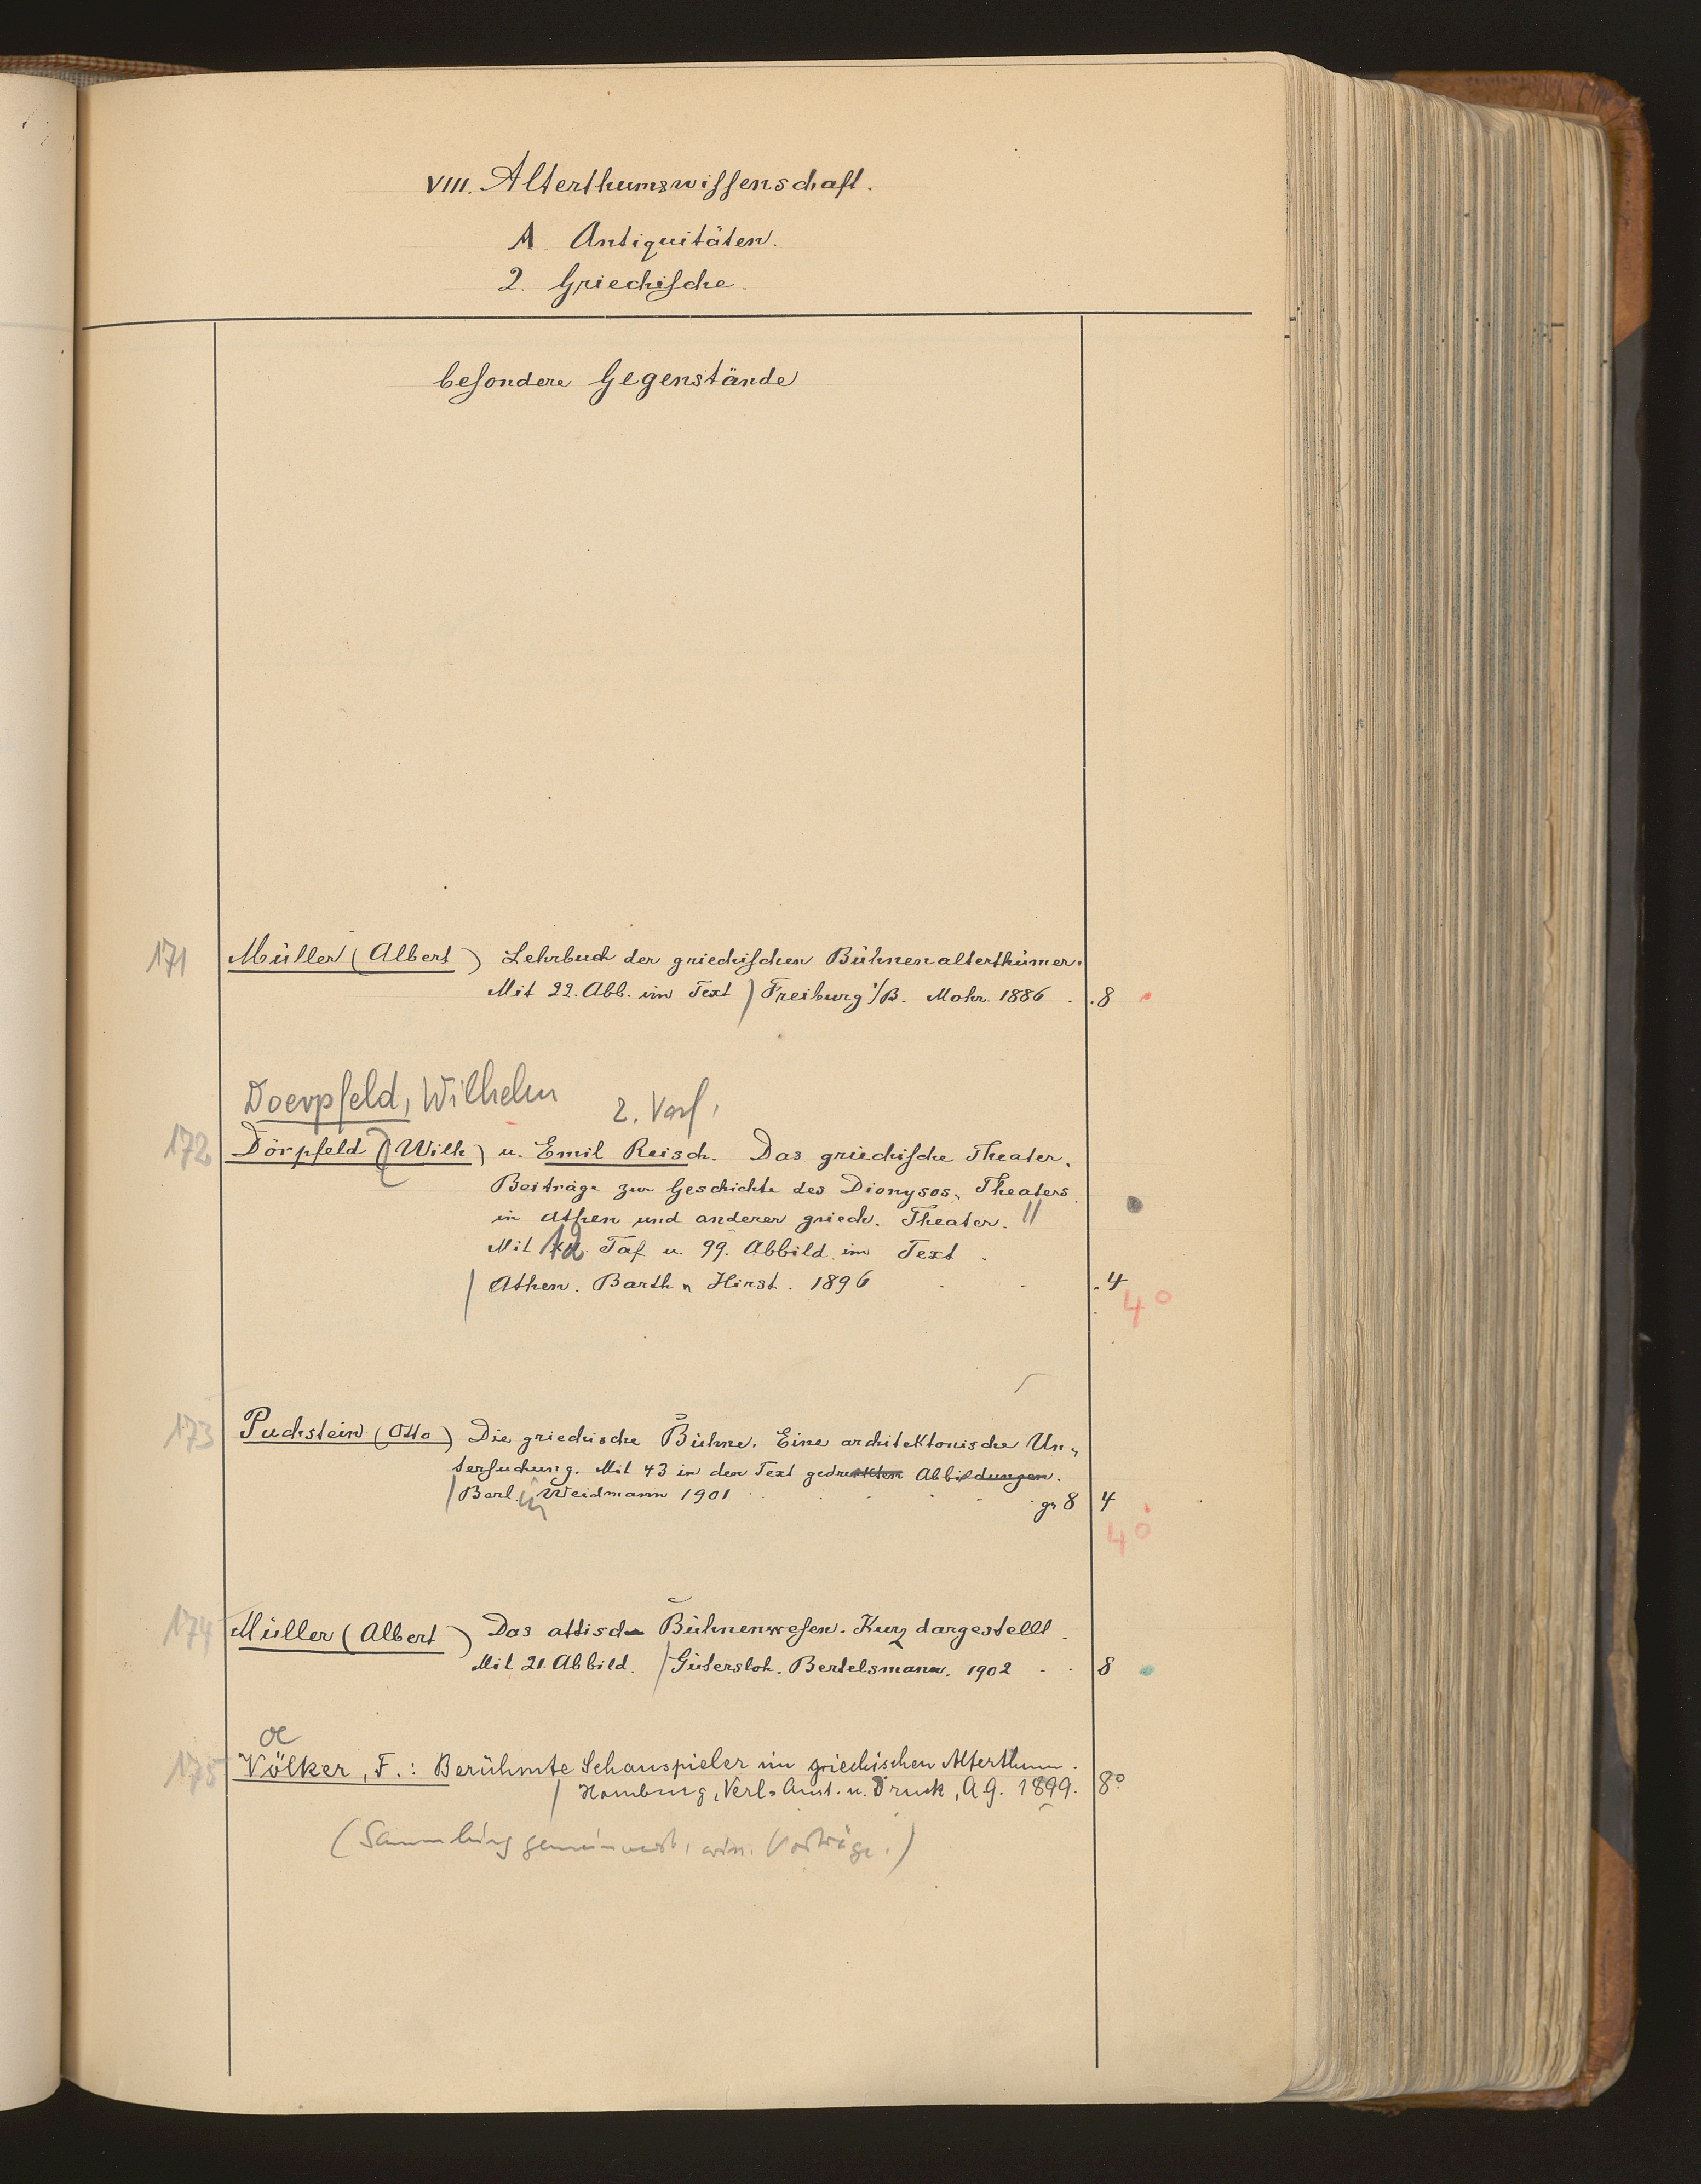 VIII. Alterthumswissenschaft.
A. Antiquitäten.
2. Griechische.
besondere Gegenstände
171 Müller (Albert) Lehrbuch der griechischen Bühnenalterthümer.
Mit 22. Abb. im Text / Freiburg i/B. Mohr. 1886 . . 8
Doerpfeld, Wilhelm 2. Verf.
172 Dörpfeld (Wilh) u. Emil Reisch. Das griechische Theater.
Beiträge zur Geschichte des Dionysos-Theaters
in Athen und anderer griech. Theater. //
Mit 12 Taf u. 99. Abbild. im Text .
/ Athen. Barth u Hirst. 1896 . . . 4
4°
173 Puchstein (Otto) Die griechische Bühne. Eine architektonische Un-
tersuchung. Mit 43 in den Text gedruckten Abbildungen.
/ Berl.in Weidmann 1901 gr 8 4
4°
174 Müller (Albert) Das attische Bühnenwesen. Kurz dargestellt.
Mit 21. Abbild. / Gütersloh. Bertelsmann. 1902 . . 8
oe
175 Völker, F.: Berühmte Schauspieler im griechischen Alterthum.
/ Hamburg, Verl.-Anst. u. Druck, A G. 1899. 8°
(Sammlung gemeinverst. wiss. Vorträge.)